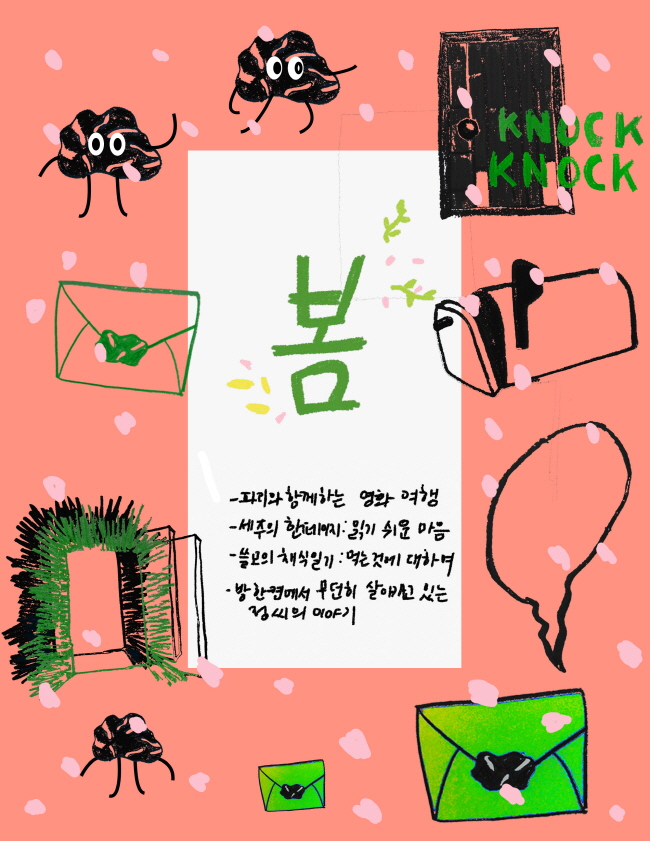 KNOCK
KNOCK
봄
-파리와 함께하는 영화 여행
-세주의 한페이지: 읽기 쉬운 마음
-쓸모의 채식일기: 먹는것에 대하여
-방 한켠에서 무던히 살아내고 있는
정씨의 이야기